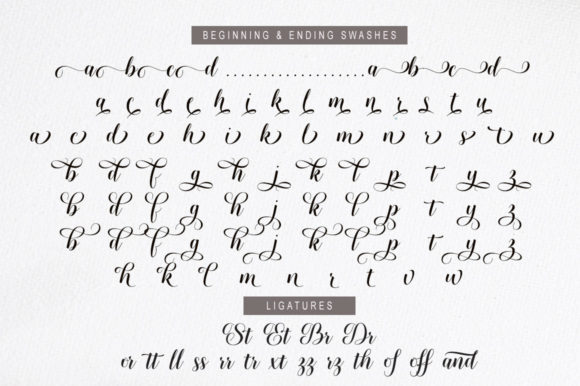 BEGINNING & ENDING SWASHES
a b c d ................... a b c d
a c d e h i k l m n r s t u
a c d e h i k l m n r s t u
b d f g h j k l p t y z
b d f g h j k l p t y z
b d f g h j k l p t y z
h k l m n r t v w
LIGATURES
St Et Br Dr
or tt ll ss rr tr xt zz rz th of off and